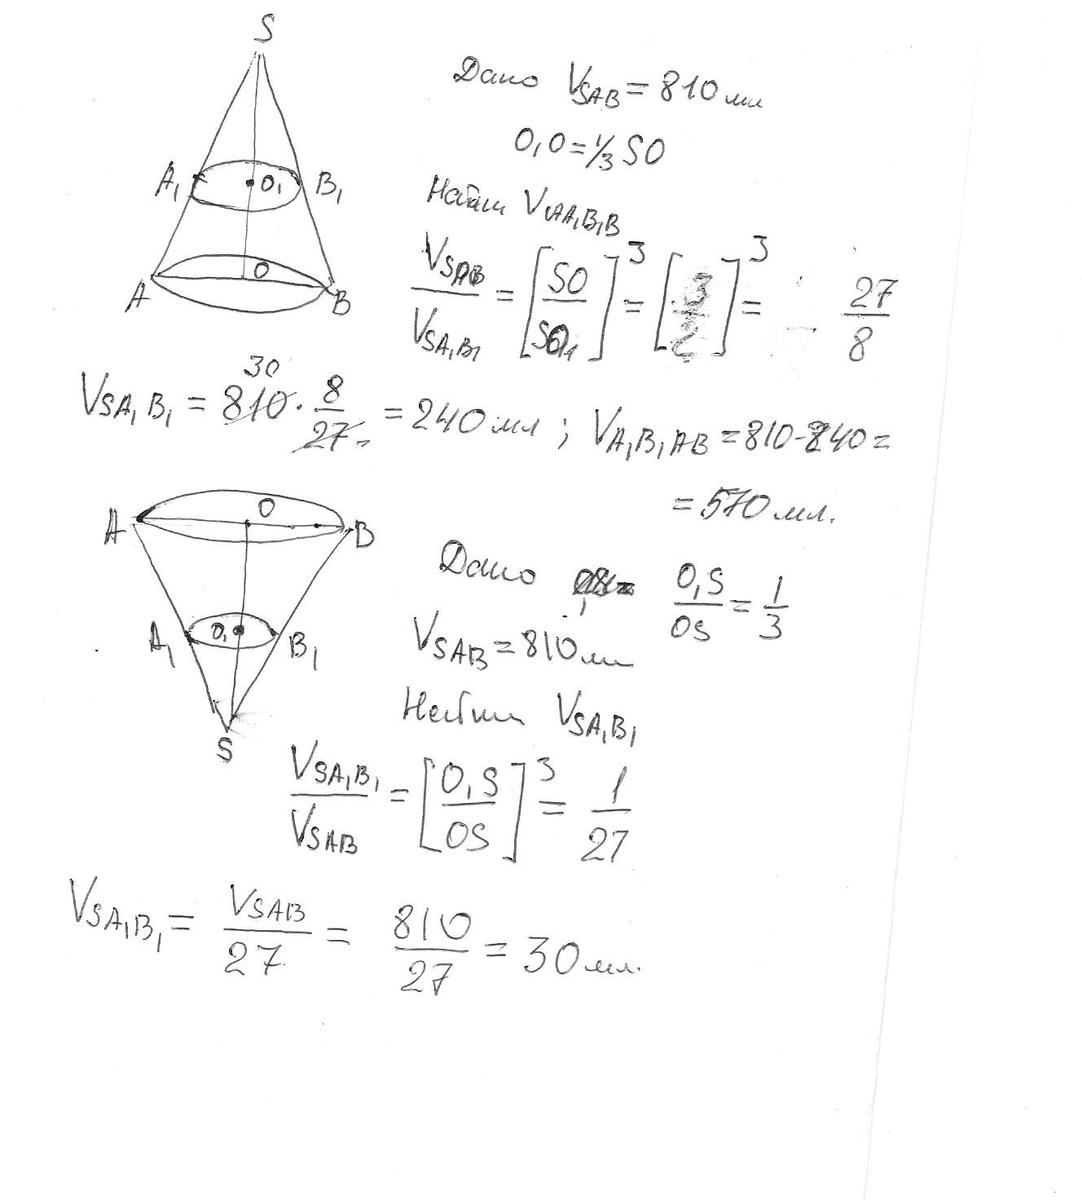 S
Дано V_SAB = 810 мл
O₁O = 1/3 SO
A₁ O₁ B₁
Найти V_AA₁B₁B
A O B
V_SAB / V_SA₁B₁ = [SO / SO₁]³ = [3/2]³ = 27/8
V_SA₁B₁ = 810 · 8/27 = 240 мл ; V_A₁B₁AB = 810-240 =
30
= 570 мл.
A O B
Дано O₁S/OS = 1/3
A₁ O₁ B₁
V_SAB = 810 мл
Найти V_SA₁B₁
S
V_SA₁B₁ / V_SAB = [O₁S / OS]³ = 1/27
V_SA₁B₁ = V_SAB / 27 = 810/27 = 30 мл.